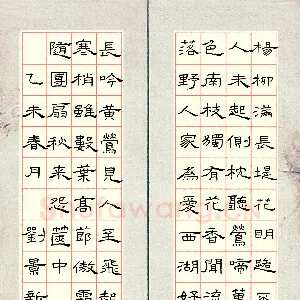 楊柳滿長堤花明路
人未起側枕聽鶯啼萬
色南枝獨有花香聞流
落野人家為愛西湖好
長吟黃鶯見人至飛起
寒梢雖數葉高節傲霜
隨團扇秋來怨篋中
乙未春月劉景新